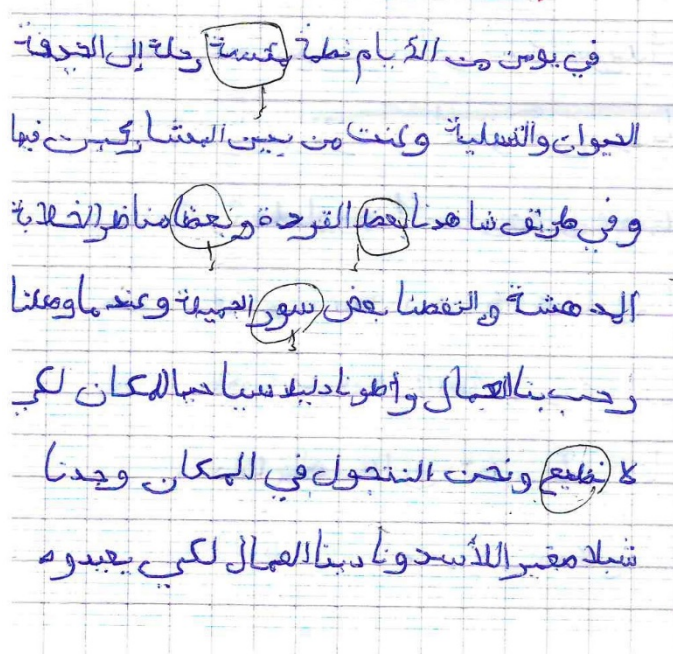 في يومن من الأيام نطمة مئسسة رحلة إلى الحدقة
الحيوان والتسلية وكنت من بيين المشاركيين فيها
وفي طريق شاهدنا بعظ القردة وبعظا مناظر الخلابة
المدهشة والتقطنا بعض سور الجميلة وعند ما وصلنا
رحب بنا العمال وأطونا دليلا سياحيا للمكان لكي
لا نظيع ونحن النتجول في المكان وجدنا
شبلا صغير اللأسد ونادينا العمال لكي يعيدوه